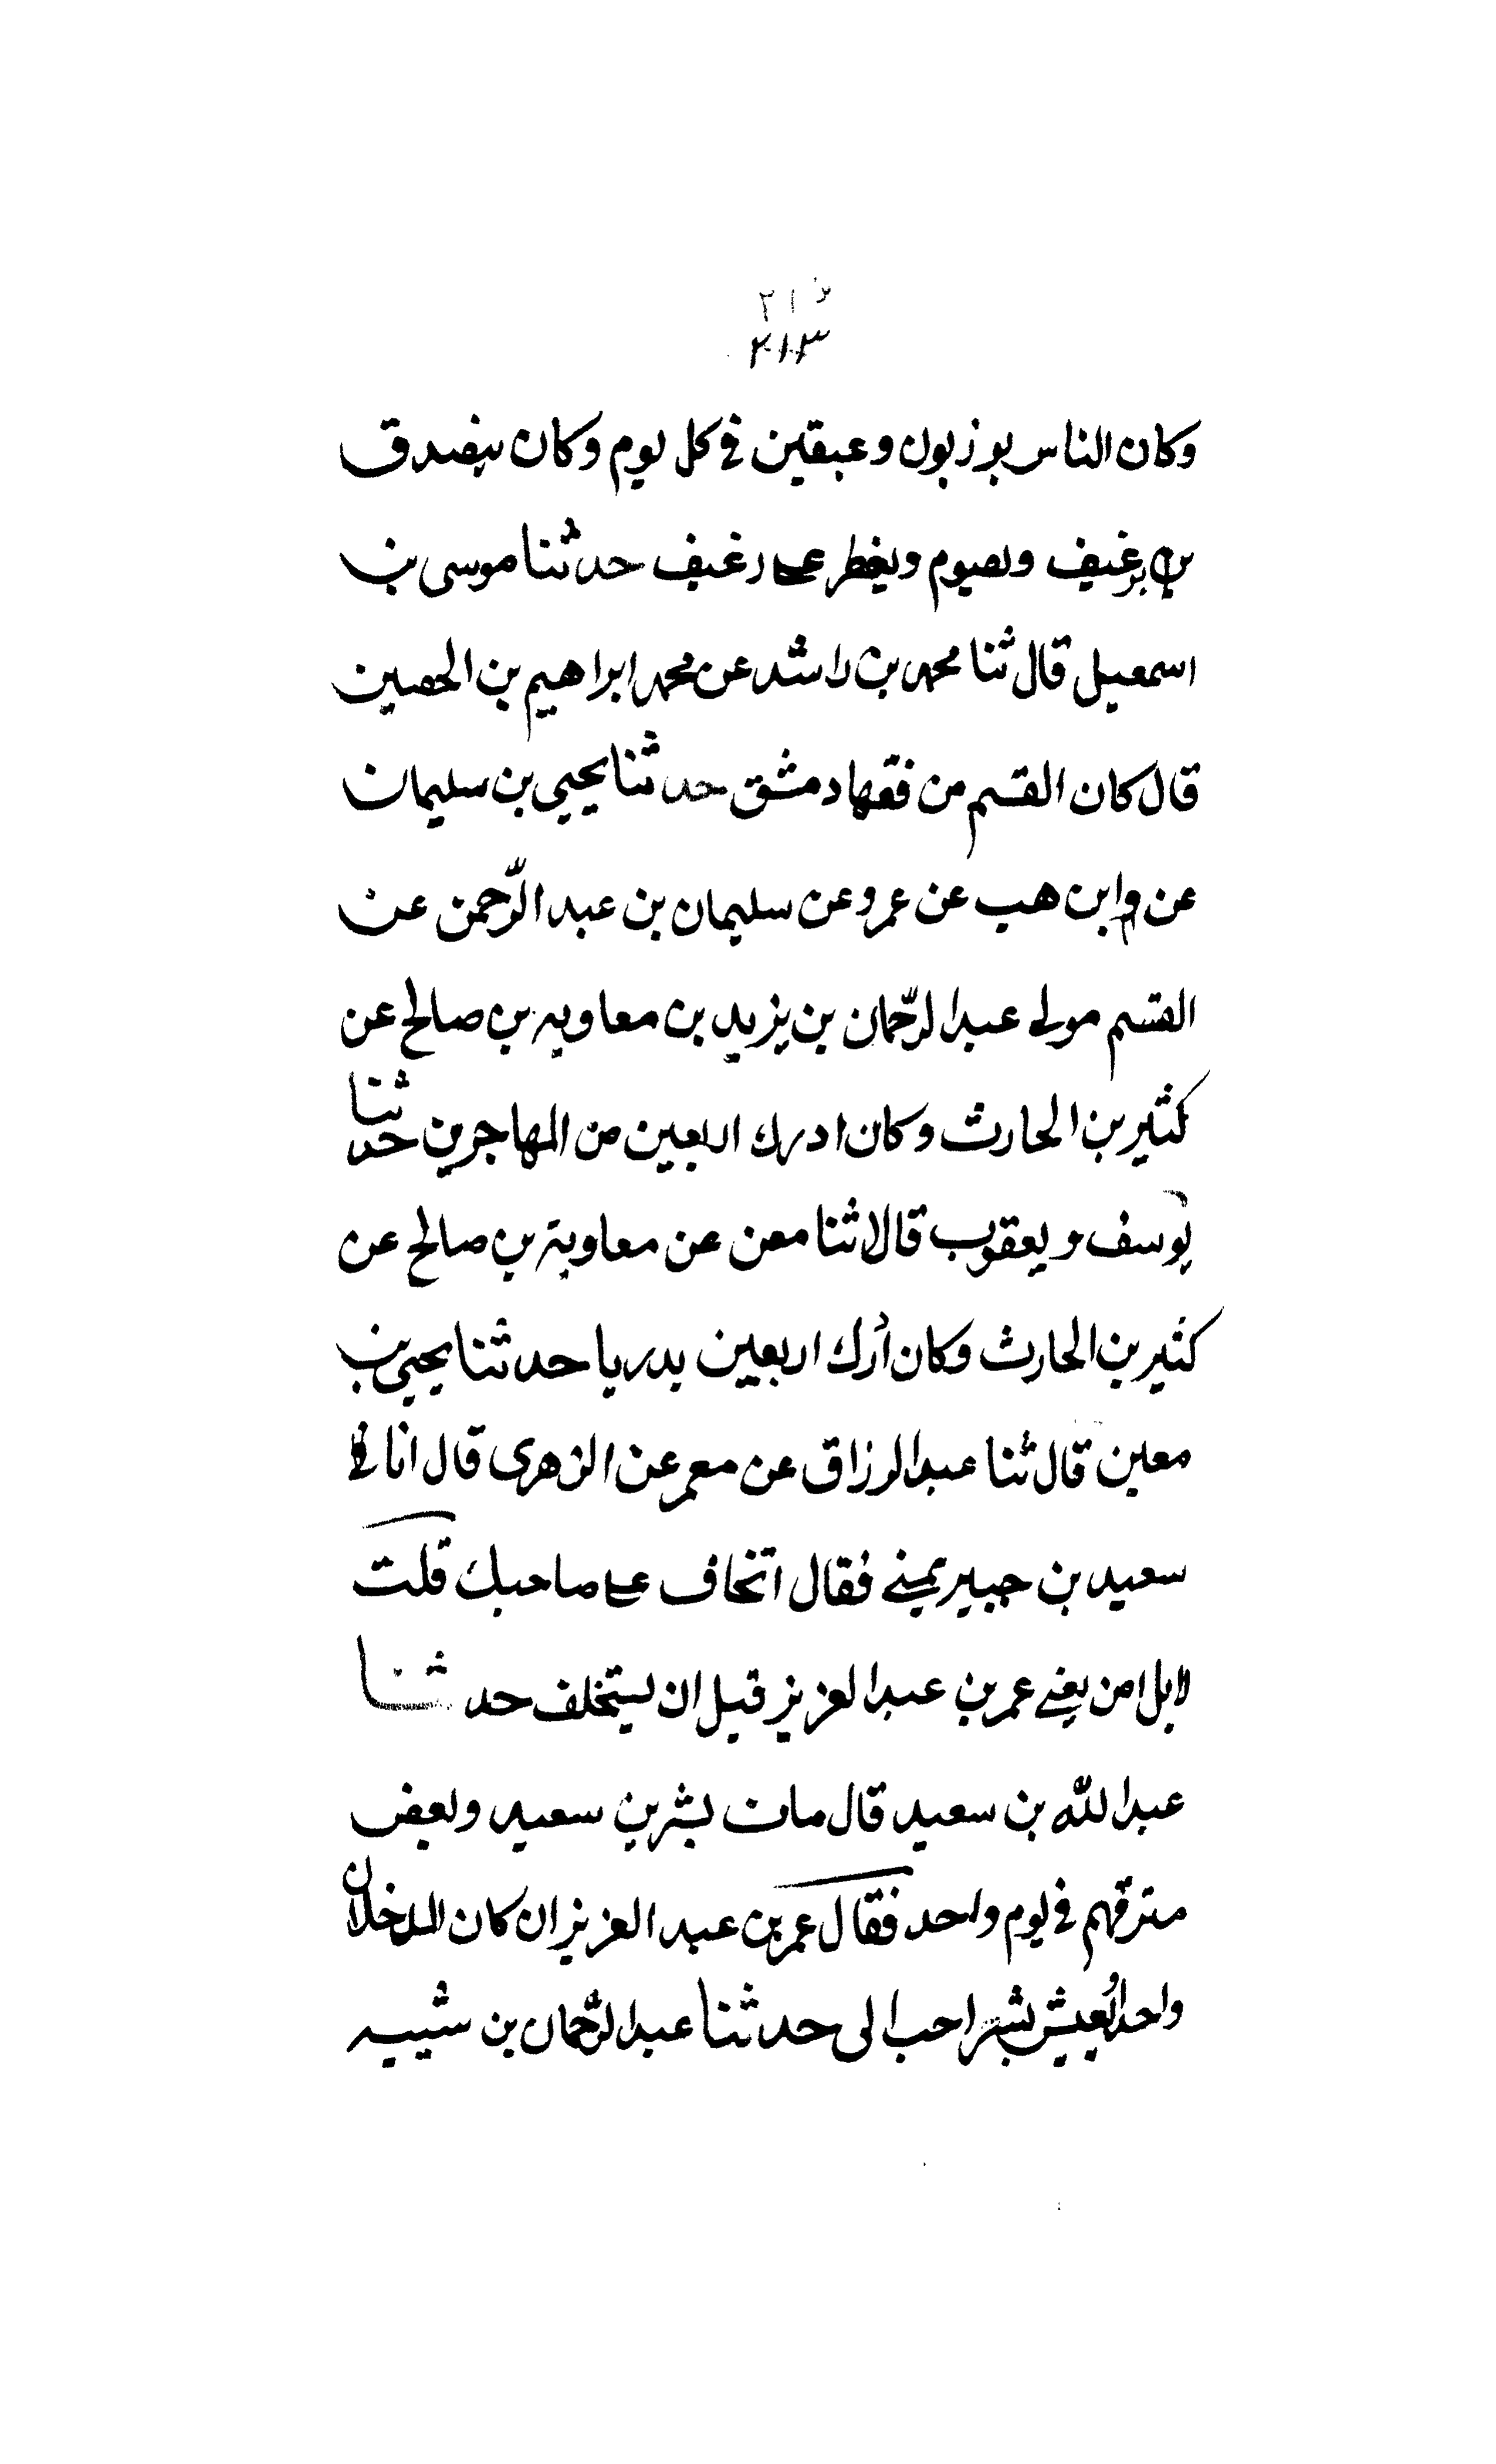 ٢١٢
٢١٣
وكان الناس يوزبون وعبقين في كل يوم وكان يتصدق
برغيف ويصوم ويفطر على رغيف حدثنا موسى بن
اسمعيل قال ثنا محمد بن راشد عن محمد ابراهيم بن الحصين
قال كان القسم من فقهاد مشق حدثنا يحيى بن سليمان
عن وابن هب عن عمرو عن سليمان بن عبد الرّحمن عن
القسم مولى عبد الرّحمان بن يزيد بن معاويه بن صالح عن
كثير بن الحارث وكان ادرك اربعين من المهاجرين حدثنا
يوسف ويعقوب قالا ثنا معن عن معاوية بن صالح عن
كثير بن الحارث وكان أرك اربعين بدريا حدثنا يحيى بن
معين قال ثنا عبد الرزاق عن معمر عن الزهرى قال انا
سعيد بن جبير يمينے فقال اتخاف على صاحبك قلت
لا بل امن يعنے عمر بن عبد العزيز قبل ان يستخلف حدثنا
عبد الله بن سعيد قال مات بشر بن سعيد وبعض
مترفهم في يوم واحد فقال عمر بن عبد العزيز ان كان المدخلان
واحدا لعيش بشر احب الى حدثنا عبد الرّحمان بن شيبه